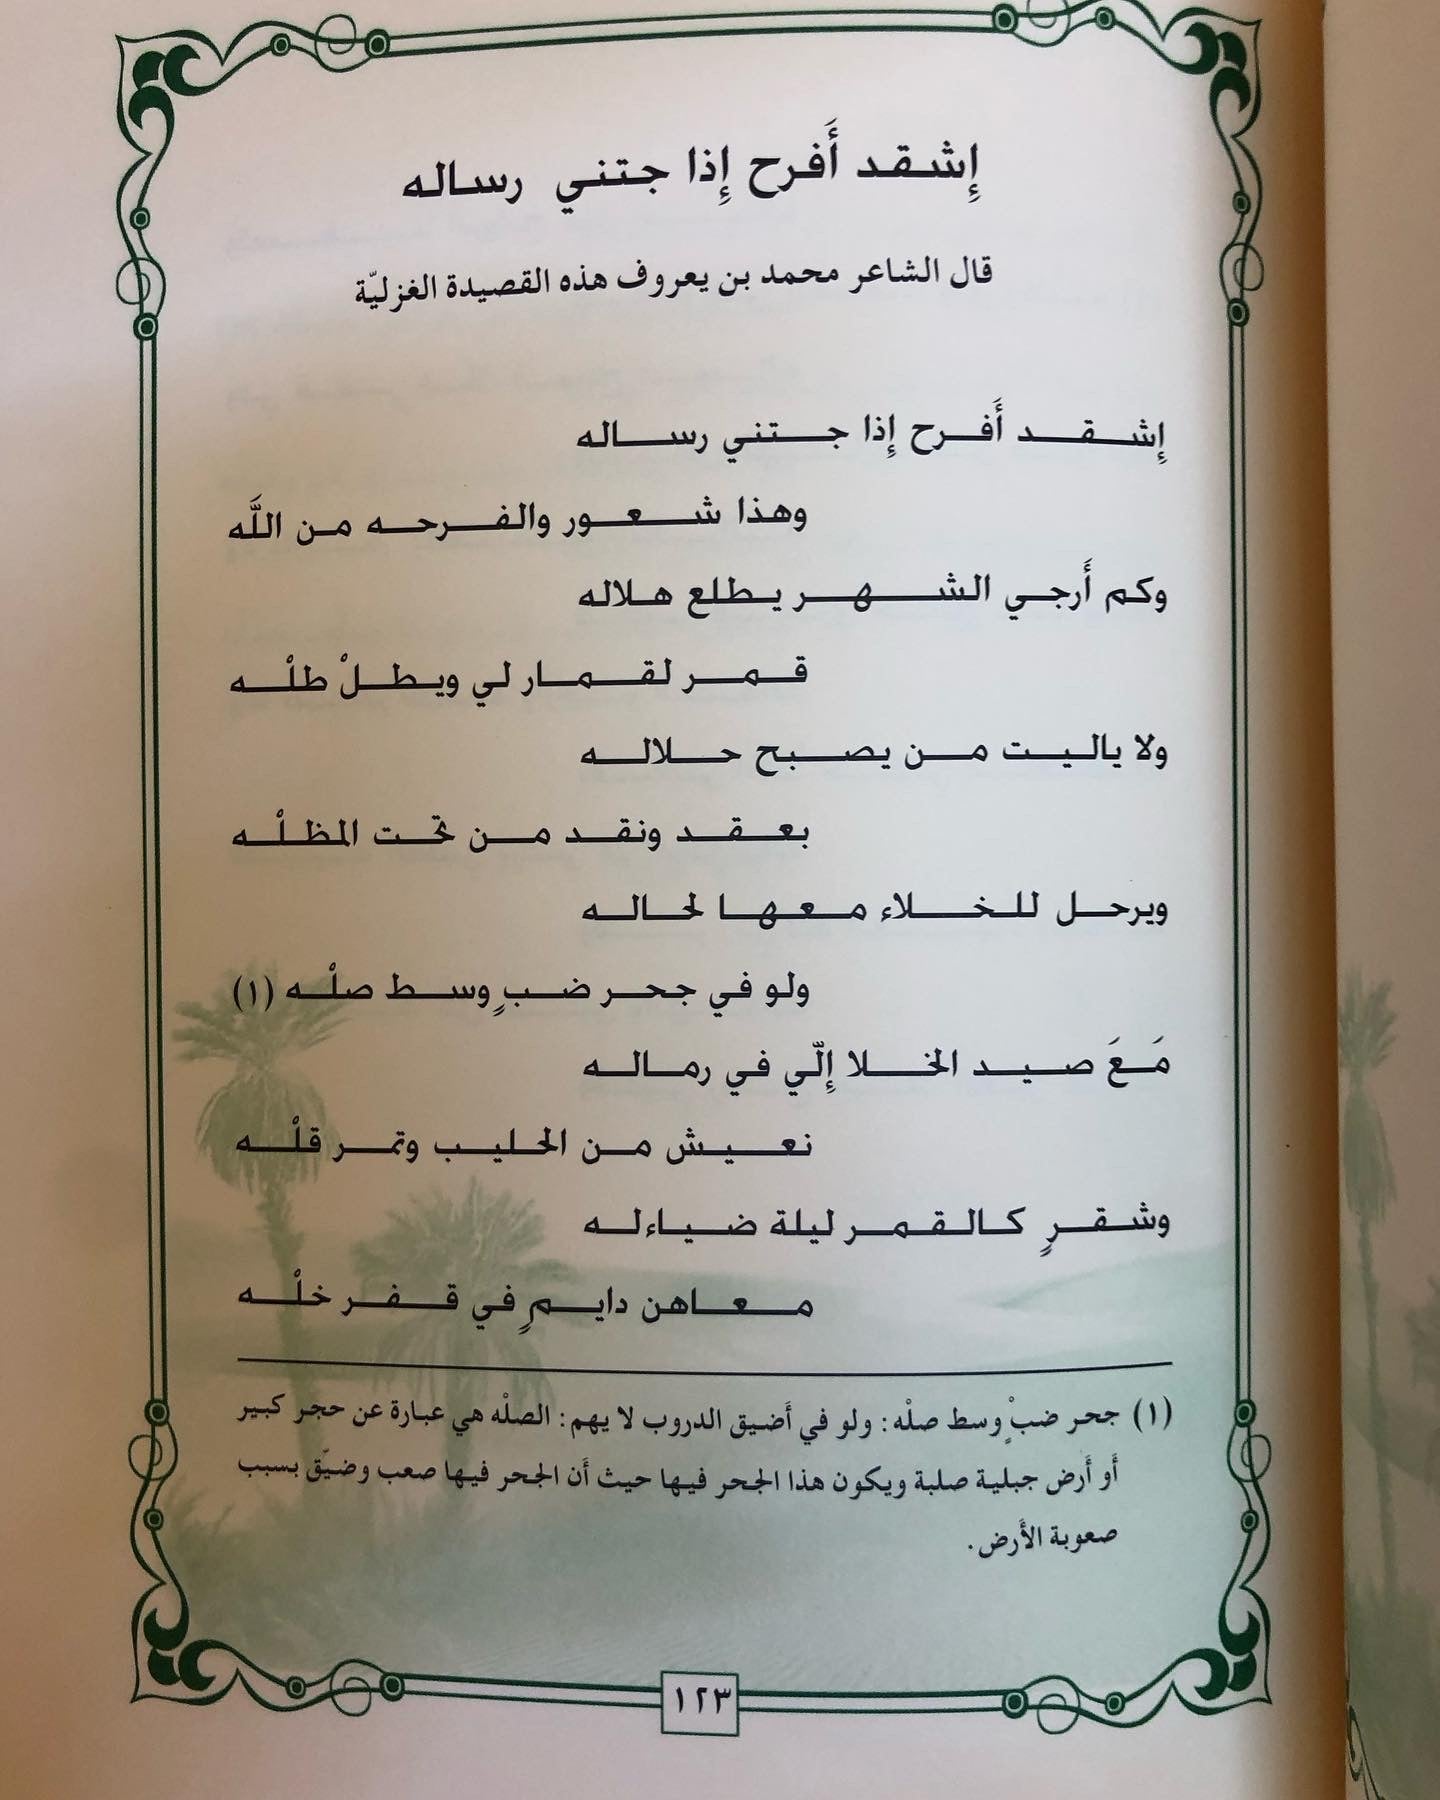 إِشقد أَفرح إِذا جتني رساله
قال الشاعر محمد بن يعروف هذه القصيدة الغزليّة
إِشقد أَفرح إِذا جتني رساله
وهذا شعور والفرحه من اللَّه
وكم أَرجي الشهر يطلع هلاله
قمر لقمار لي ويطلْ طلْه
ولا ياليت من يصبح حلاله
بعقد ونقد من تحت المظلْه
ويرحل للخلاء معها لحاله
ولو في جحر ضبٍ وسط صلْه (١)
مَعَ صيد الخلا إِلّي في رماله
نعيش من الحليب وتمر قلْه
وشقرٍ كالقمر ليلة ضياءله
معاهن دايمٍ في قفر خلْه
(١) جحر ضبْ وسط صلْه: ولو في أَضيق الدروب لا يهم: الصلْه هي عبارة عن حجر كبير
أَو أَرض جبلية صلبة ويكون هذا الجحر فيها حيث أَن الجحر فيها صعب وضيّق بسبب
صعوبة الأَرض.
١٢٣